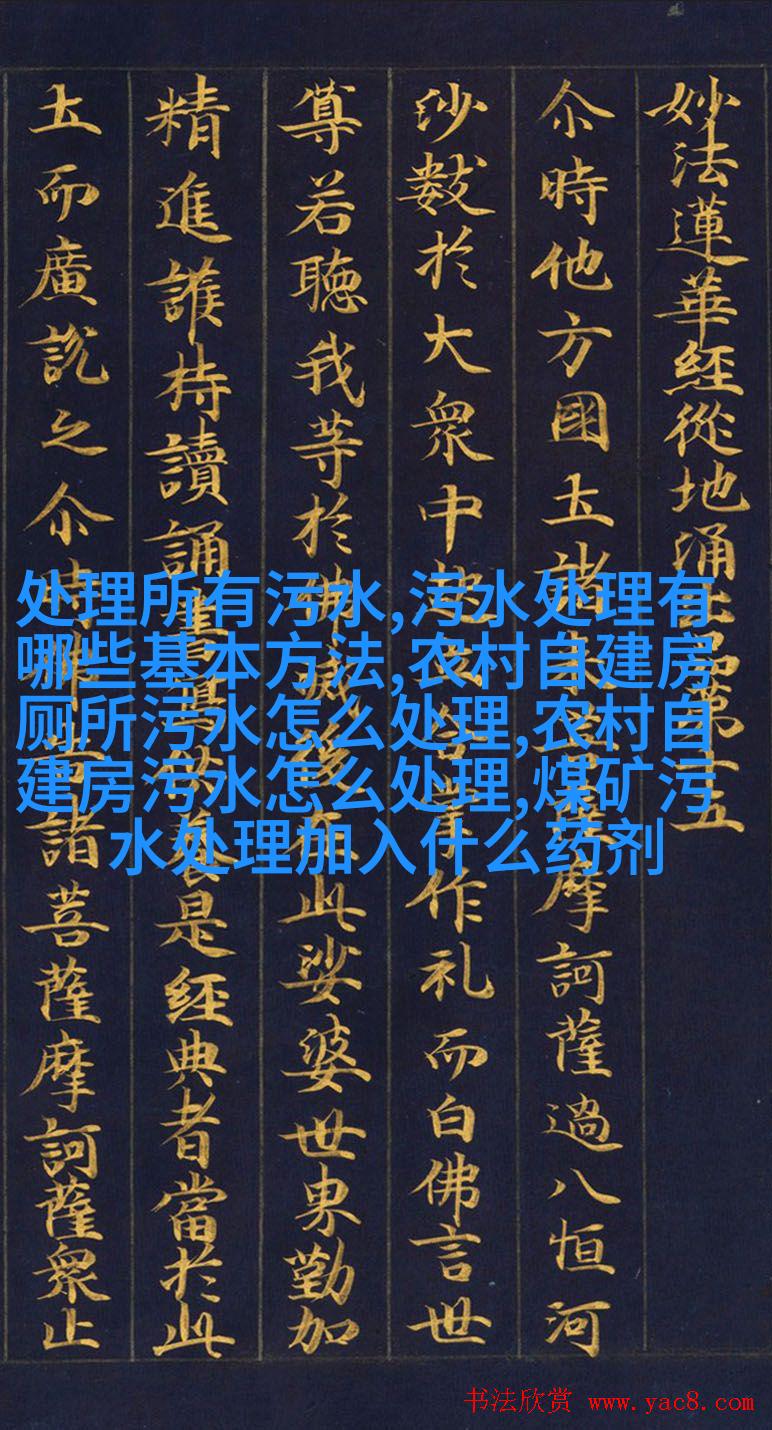 妙法蓮華經從地涌出品第十五
尒時他方國土諸來菩薩摩訶薩過八恒河
沙數於大眾中起立合掌作礼而白佛言世
尊若聽我等於佛滅後在此娑婆世界勤加
精進護持讀誦書寫供養是經典者當於此
土而廣說之尒時佛告諸菩薩摩訶薩眾止
处理所有污水,污水处理有
哪些基本方法,农村自建房
厕所污水怎么处理,农村自
建房污水怎么处理,煤矿污
水处理加入什么药剂
书法欣赏 www.yac8.com